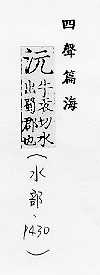 四聲篇海
沅牛袁切水
出蜀郡也
(水部、P430)